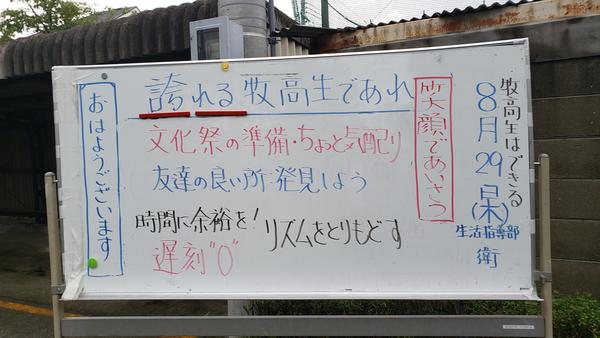 牧高生はできる
8月29日(木)
生活指導部
衛
笑顔であいさつ
誇れる牧高生であれ
文化祭の準備・ちょっと気配り
友達の良い所発見しよう
時間に余裕を!
リズムをとりもどす
遅刻"0"
おはようございます